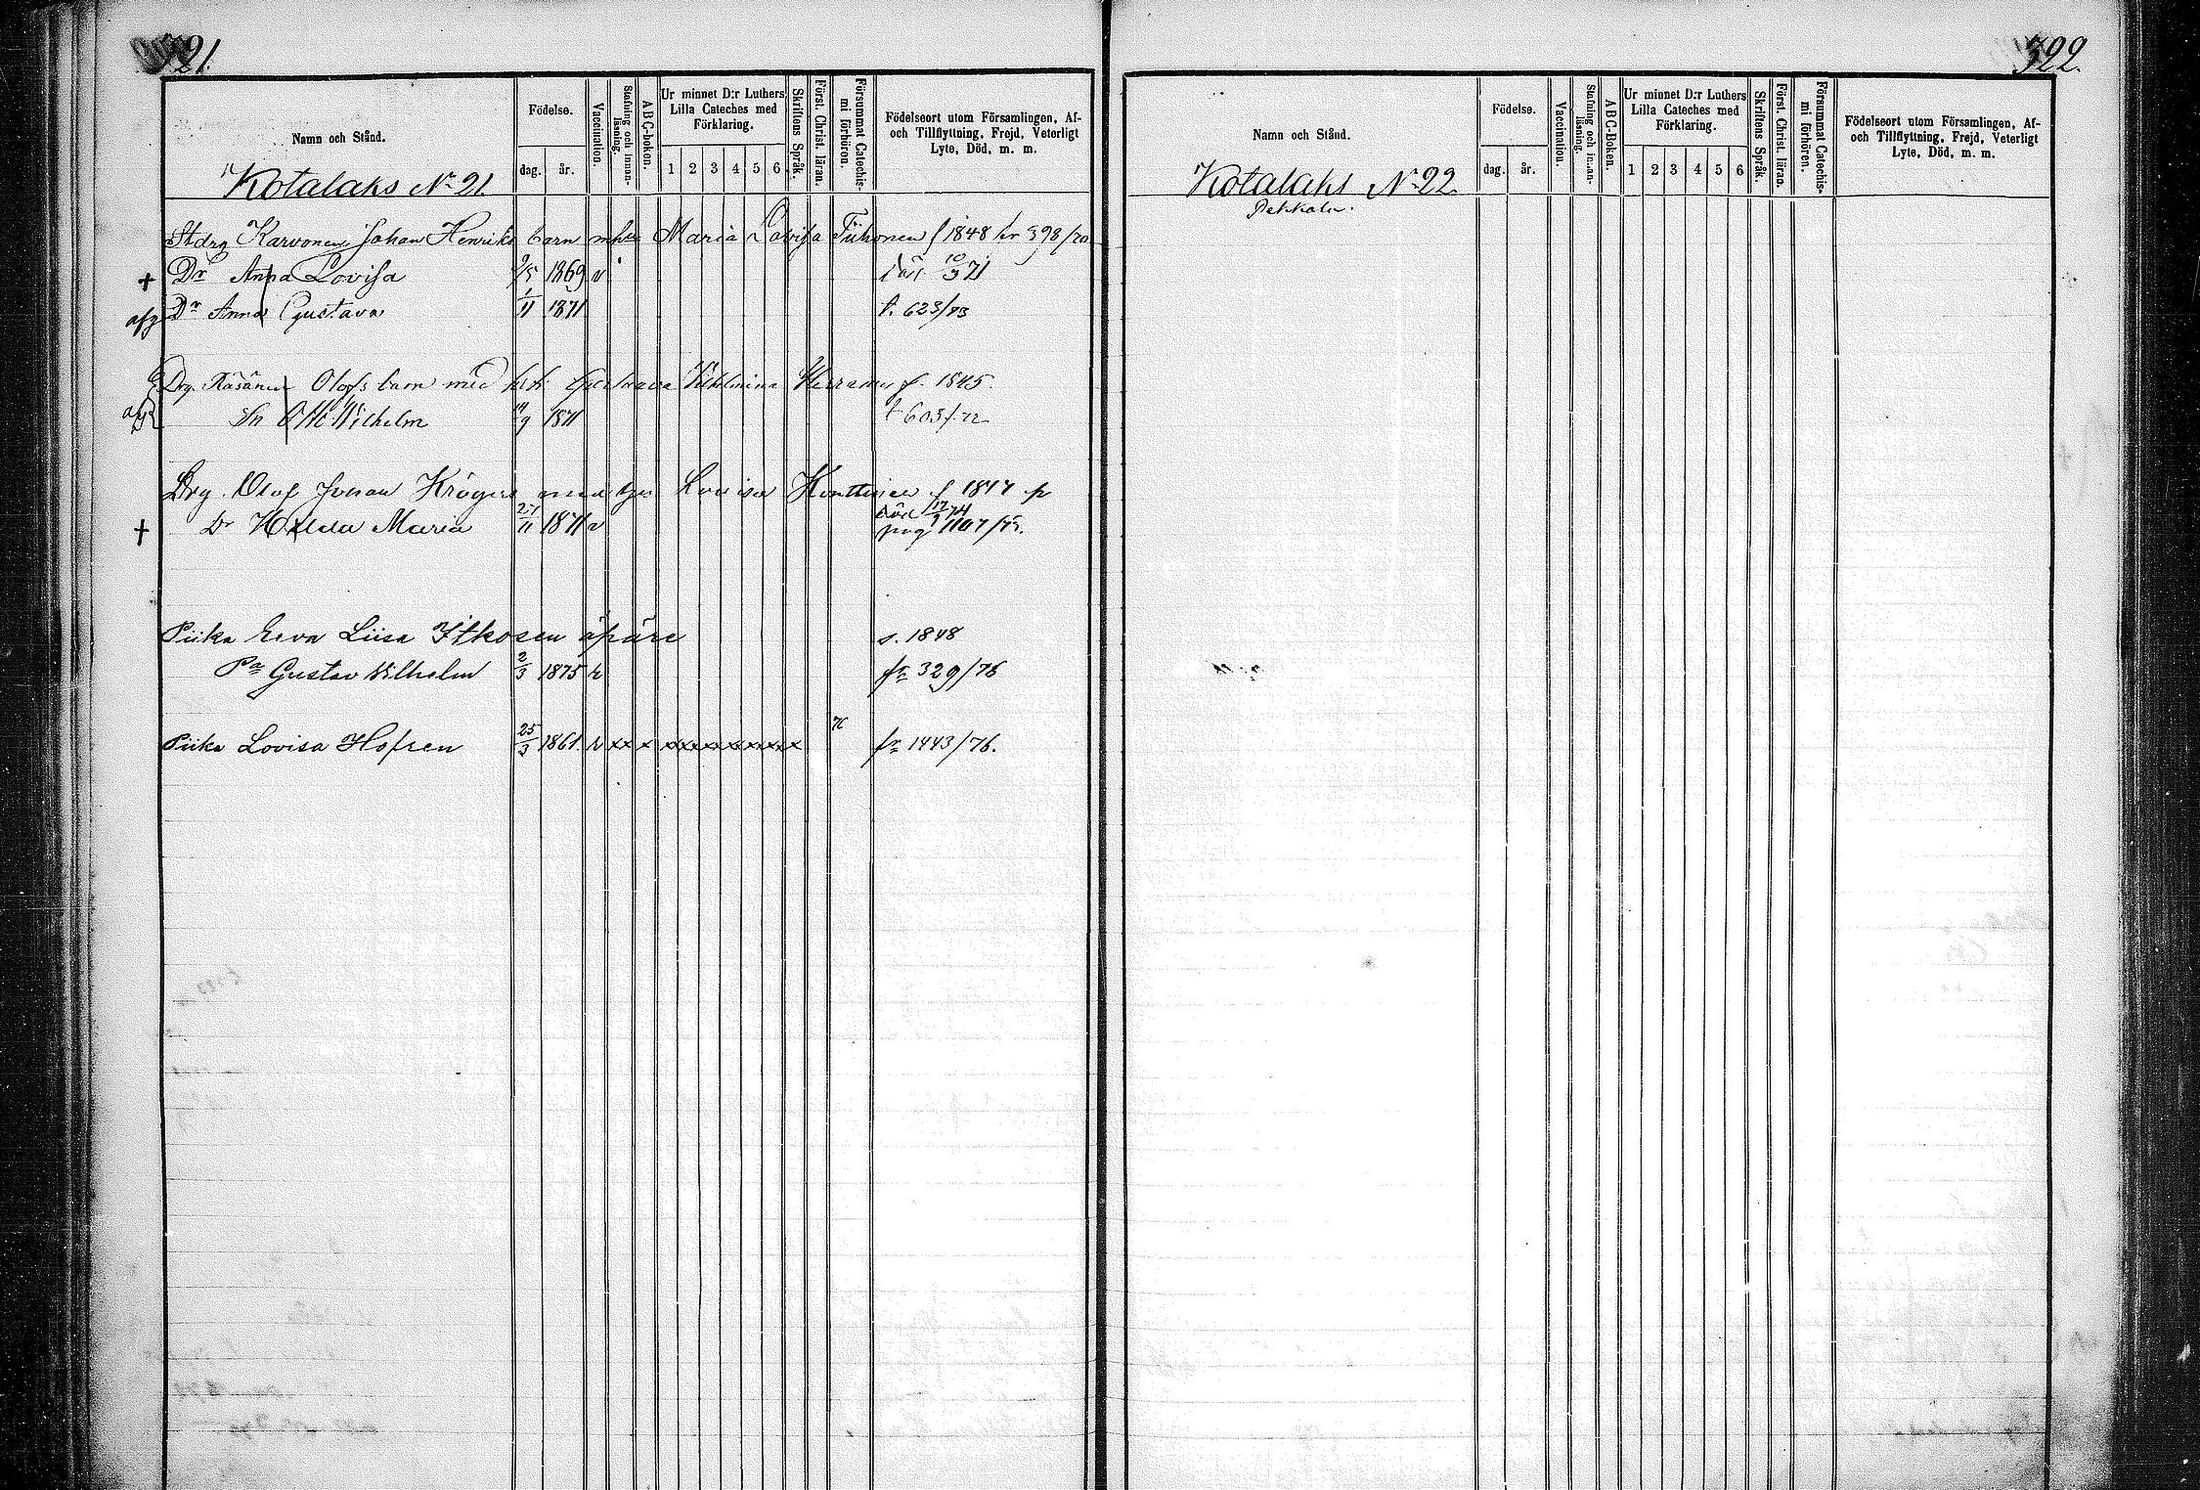 321.
Namn och Stånd.
Födelse.
dag. år.
Vaccination.
Stafning och innan-läsning.
ABC-boken.
Ur minnet D:r Luthers
Lilla Cateches med
Förklaring.
1 2 3 4 5 6
Skriftens Språk.
Först. Christ. läran.
Försummat Catechis-
mi förhören.
Födelseort utom Församlingen, Af-
och Tillflyttning, Frejd, Veterligt
Lyte, Död, m. m.
Kotalaks No 21.
Karvonen Johan Henriks barn Maria Lovisa Tiihonen f 1848 398/70
+ Dr Anna Lovisa 9/5 1869 v död 10/3 71
afg Dr Anna Gustava 1/11 1871 t. 623/73
Drg. Räsänen Olofs barn med Gustaava Wilhelmina f. 1845.
afg Sn Otto Wilhelm 14/9 1871 t 605/72
Drg. Olof Johan Krögers med Lovisa Konttinen f 1847
† Dr Hilda Maria 27/11 1871 v död 17/9 74
1107/75.
Piika Eeva Liisa Itkosen äpäre s. 1848
Pa Gustav Vilhelm 2/3 1875 v fr 329/76
76
Piika Lovisa Hofren 25/3 1861. v x x x x x x x x x x x fr 1443/76.
322.
Namn och Stånd.
Födelse.
dag. år.
Vaccination.
Stafning och innan-läsning.
ABC-Boken.
Ur minnet D:r Luthers
Lilla Cateches med
Förklaring.
1 2 3 4 5 6
Skriftens Språk.
Först. Christ. läran.
Försummat Catechis-
mi förhören.
Födelseort utom Församlingen, Af-
och Tillflyttning, Frejd, Veterligt
Lyte, Död, m. m.
Kotalaks No 22.
Pekkala.